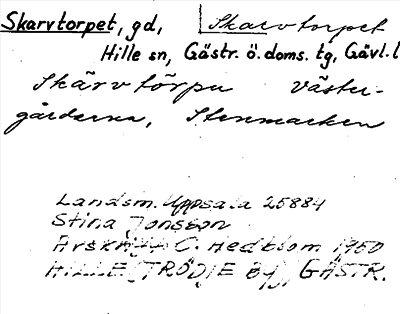 Skarvtorpet, gd, Skarvtorpet
Hille sn, Gästr. ö. doms. tg, Gävl. l
Skärvtörpu väster-
gårderna, Stenmarken
Landsm. Uppsala 25884
Stina Jonsson
C. Hedblom 1950
HILLE (TRÖDJE BY), GÄSTR.